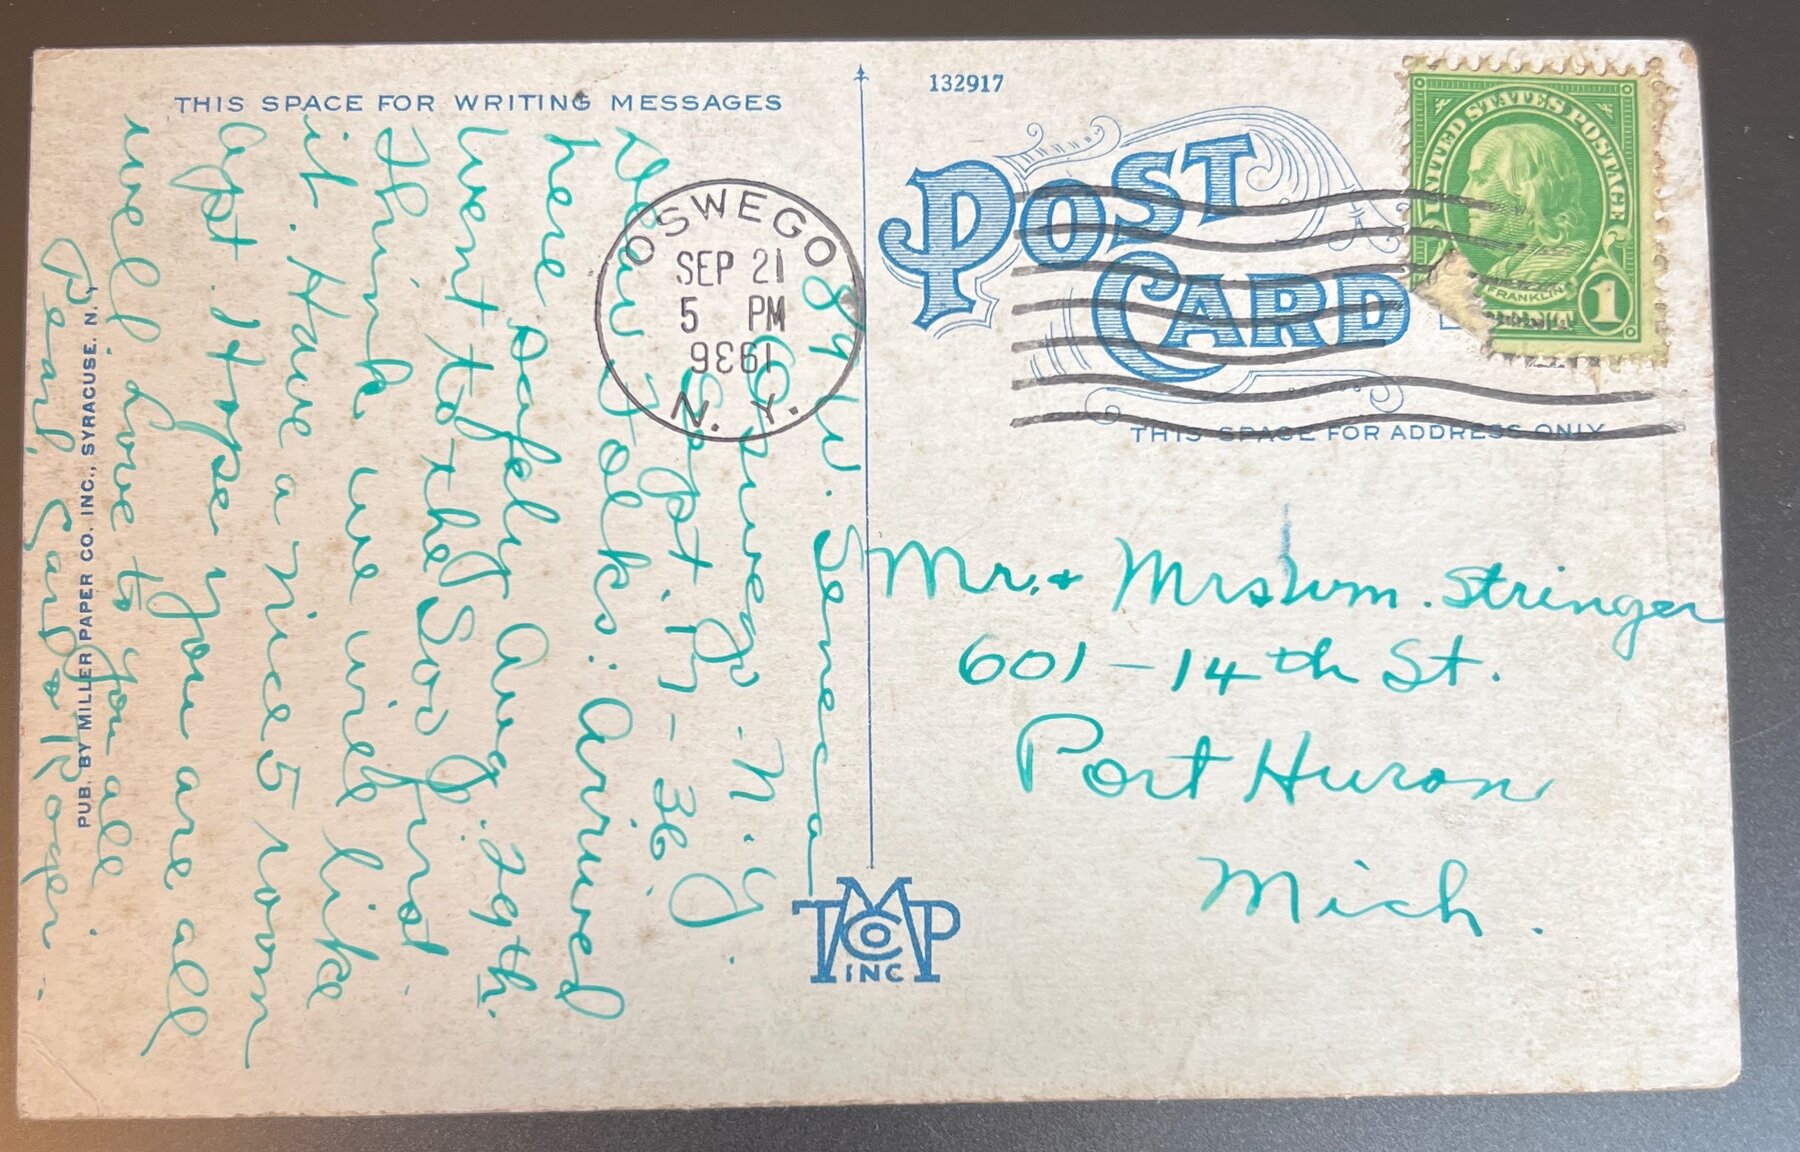 THIS SPACE FOR WRITING MESSAGES
89 W. Seneca
Oswego N.Y.
Sept. 17-36.
Dear Folks: Arrived
here safely Aug. 29th.
Went to the Soo first.
Think we will like
it. Have a nice 5 room
apt. Hope you are all
well. Love to you all
Pearl, Earl & Roger.
PUB. BY MILLER PAPER CO. INC., SYRACUSE. N.Y.
OSWEGO
SEP 21
5 PM
1936
N.Y.
132917
POST CARD
UNITED STATES POSTAGE
FRANKLIN
1
THIS SPACE FOR ADDRESS ONLY
Mr. + Mrs Wm. Stringer
601-14th St.
Port Huron
Mich.
MPCO
INC